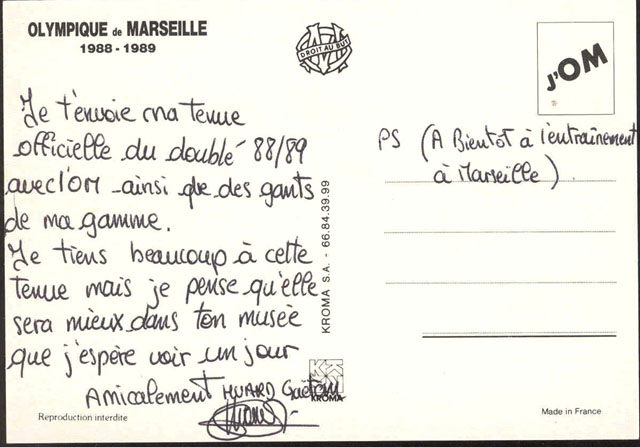 OLYMPIQUE de MARSEILLE
1988 - 1989
DROIT AU BUT
J'OM
Je t'envoie ma tenue
officielle du doublé 88/89
avec l'OM - ainsi que des gants
de ma gamme.
Je tiens beaucoup à cette
tenue mais je pense qu'elle
sera mieux dans ton musée
que j'espère voir un jour
Amicalement HUARD Gaëtan
PS (A Bientôt à l'entraînement
à Marseille)
KROMA S.A. - 66.84.39.99
KROMA
Reproduction interdite
Made in France